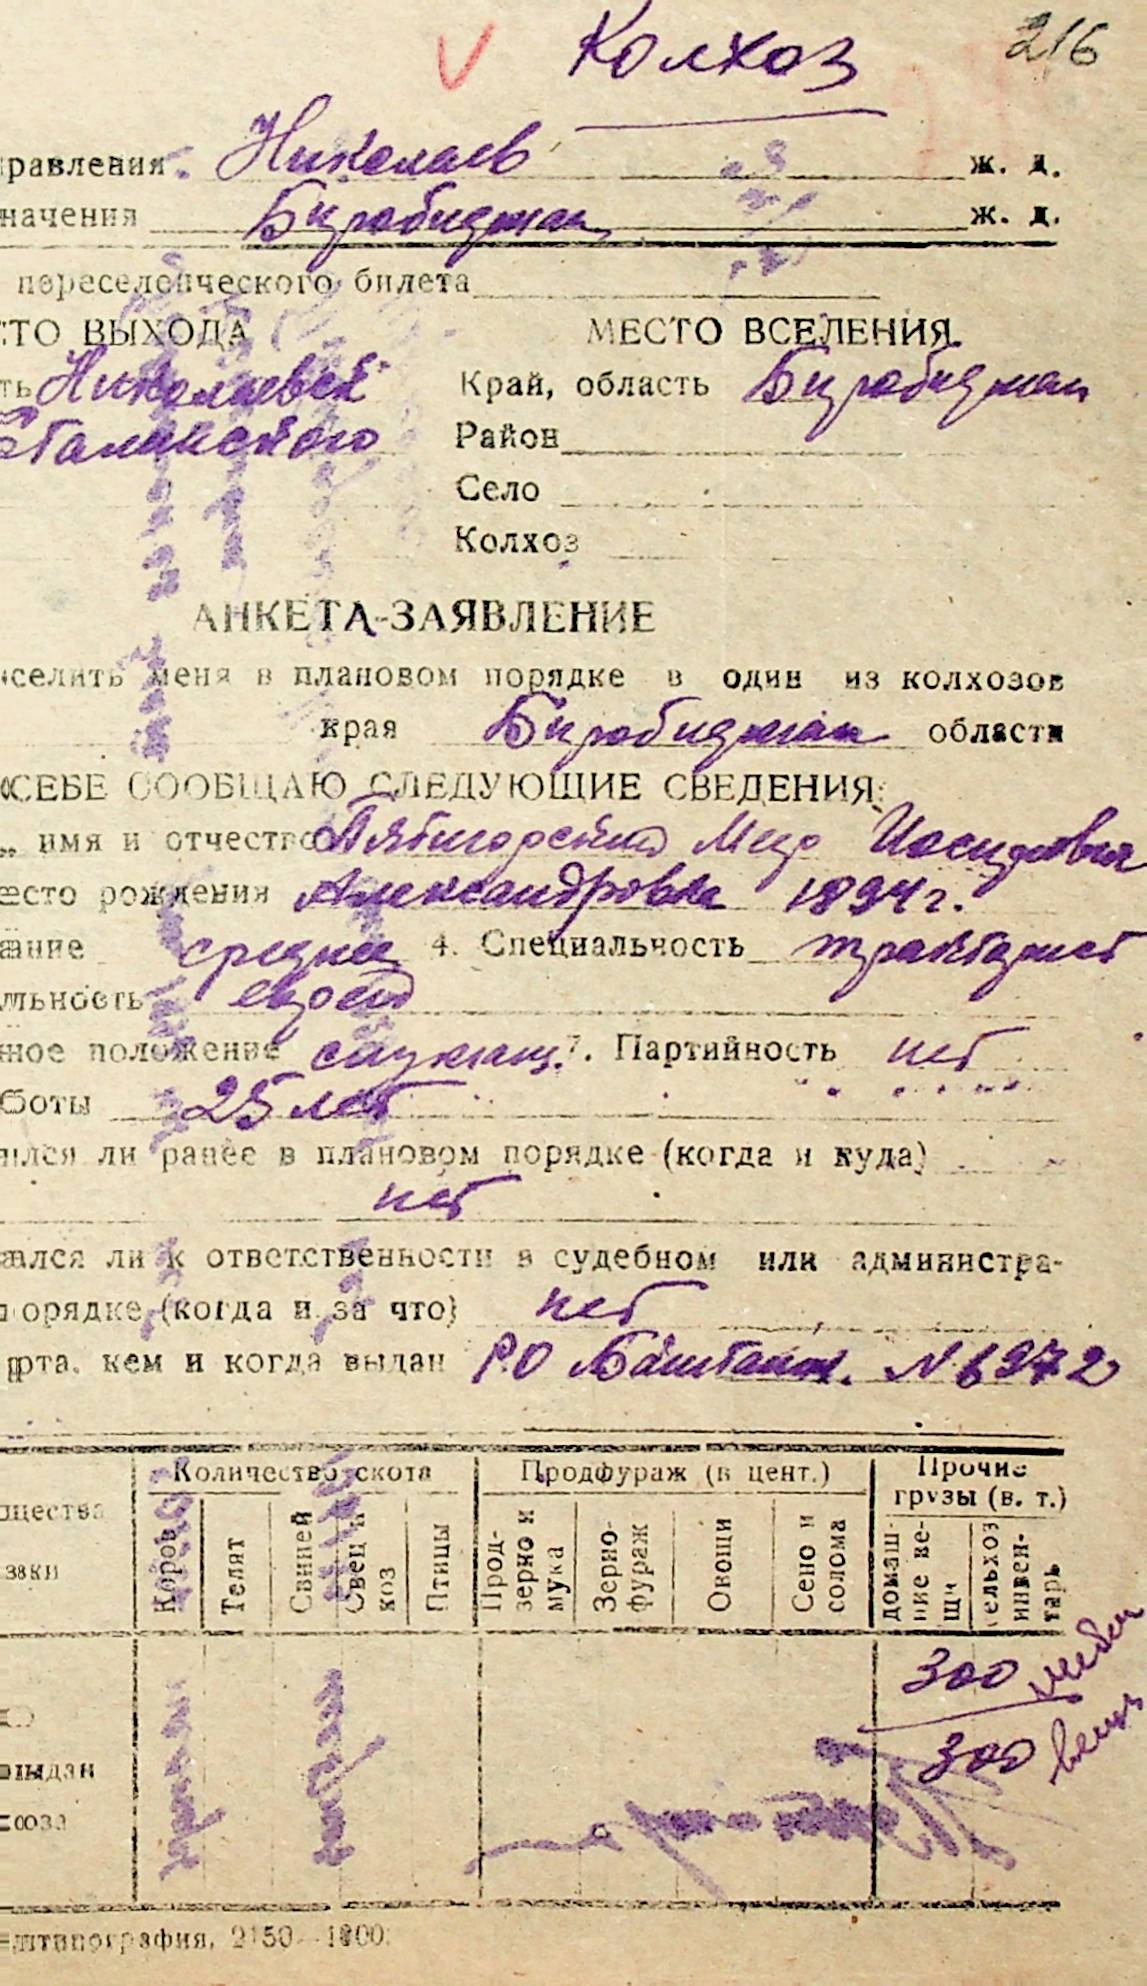 Колхоз 216
правления. Николаев ж. д.
начения Биробиджан ж. д.
переселенческого билета
СТО ВЫХОДА МЕСТО ВСЕЛЕНИЯ
ть Николаевск Край, область Биробиджан
Сталинского Район
Село
Колхоз
АНКЕТА-ЗАЯВЛЕНИЕ
селить меня в плановом порядке в один из колхозов
края Биробиджан области
СЕБЕ СООБЩАЮ СЛЕДУЮЩИЕ СВЕДЕНИЯ:
имя и отчество Пятигорский Меер Иосифович
есто рождения Александровка 1894 г.
ание среднее 4. Специальность тракторист
льность еврей
ное положение служащ. 7. Партийность нет
боты 25 лет
ился ли ранее в плановом порядке (когда и куда)
нет
ался ли к ответственности в судебном или администра-
порядке (когда и за что) нет
орта, кем и когда выдан РО Баштанк. № 6972
Количество скота Продфураж (в цент.) Прочие грузы (в. т.)
щества
зяки
Коров Телят Свиней Овец и коз Птицы Прод-зерно и мука Зерно-фураж Овощи Сено и солома домаш-ние ве-щи сельхоз инвен-тарь
300 мебель
300 вещь
выдан
союза
типография, 2150—1800.